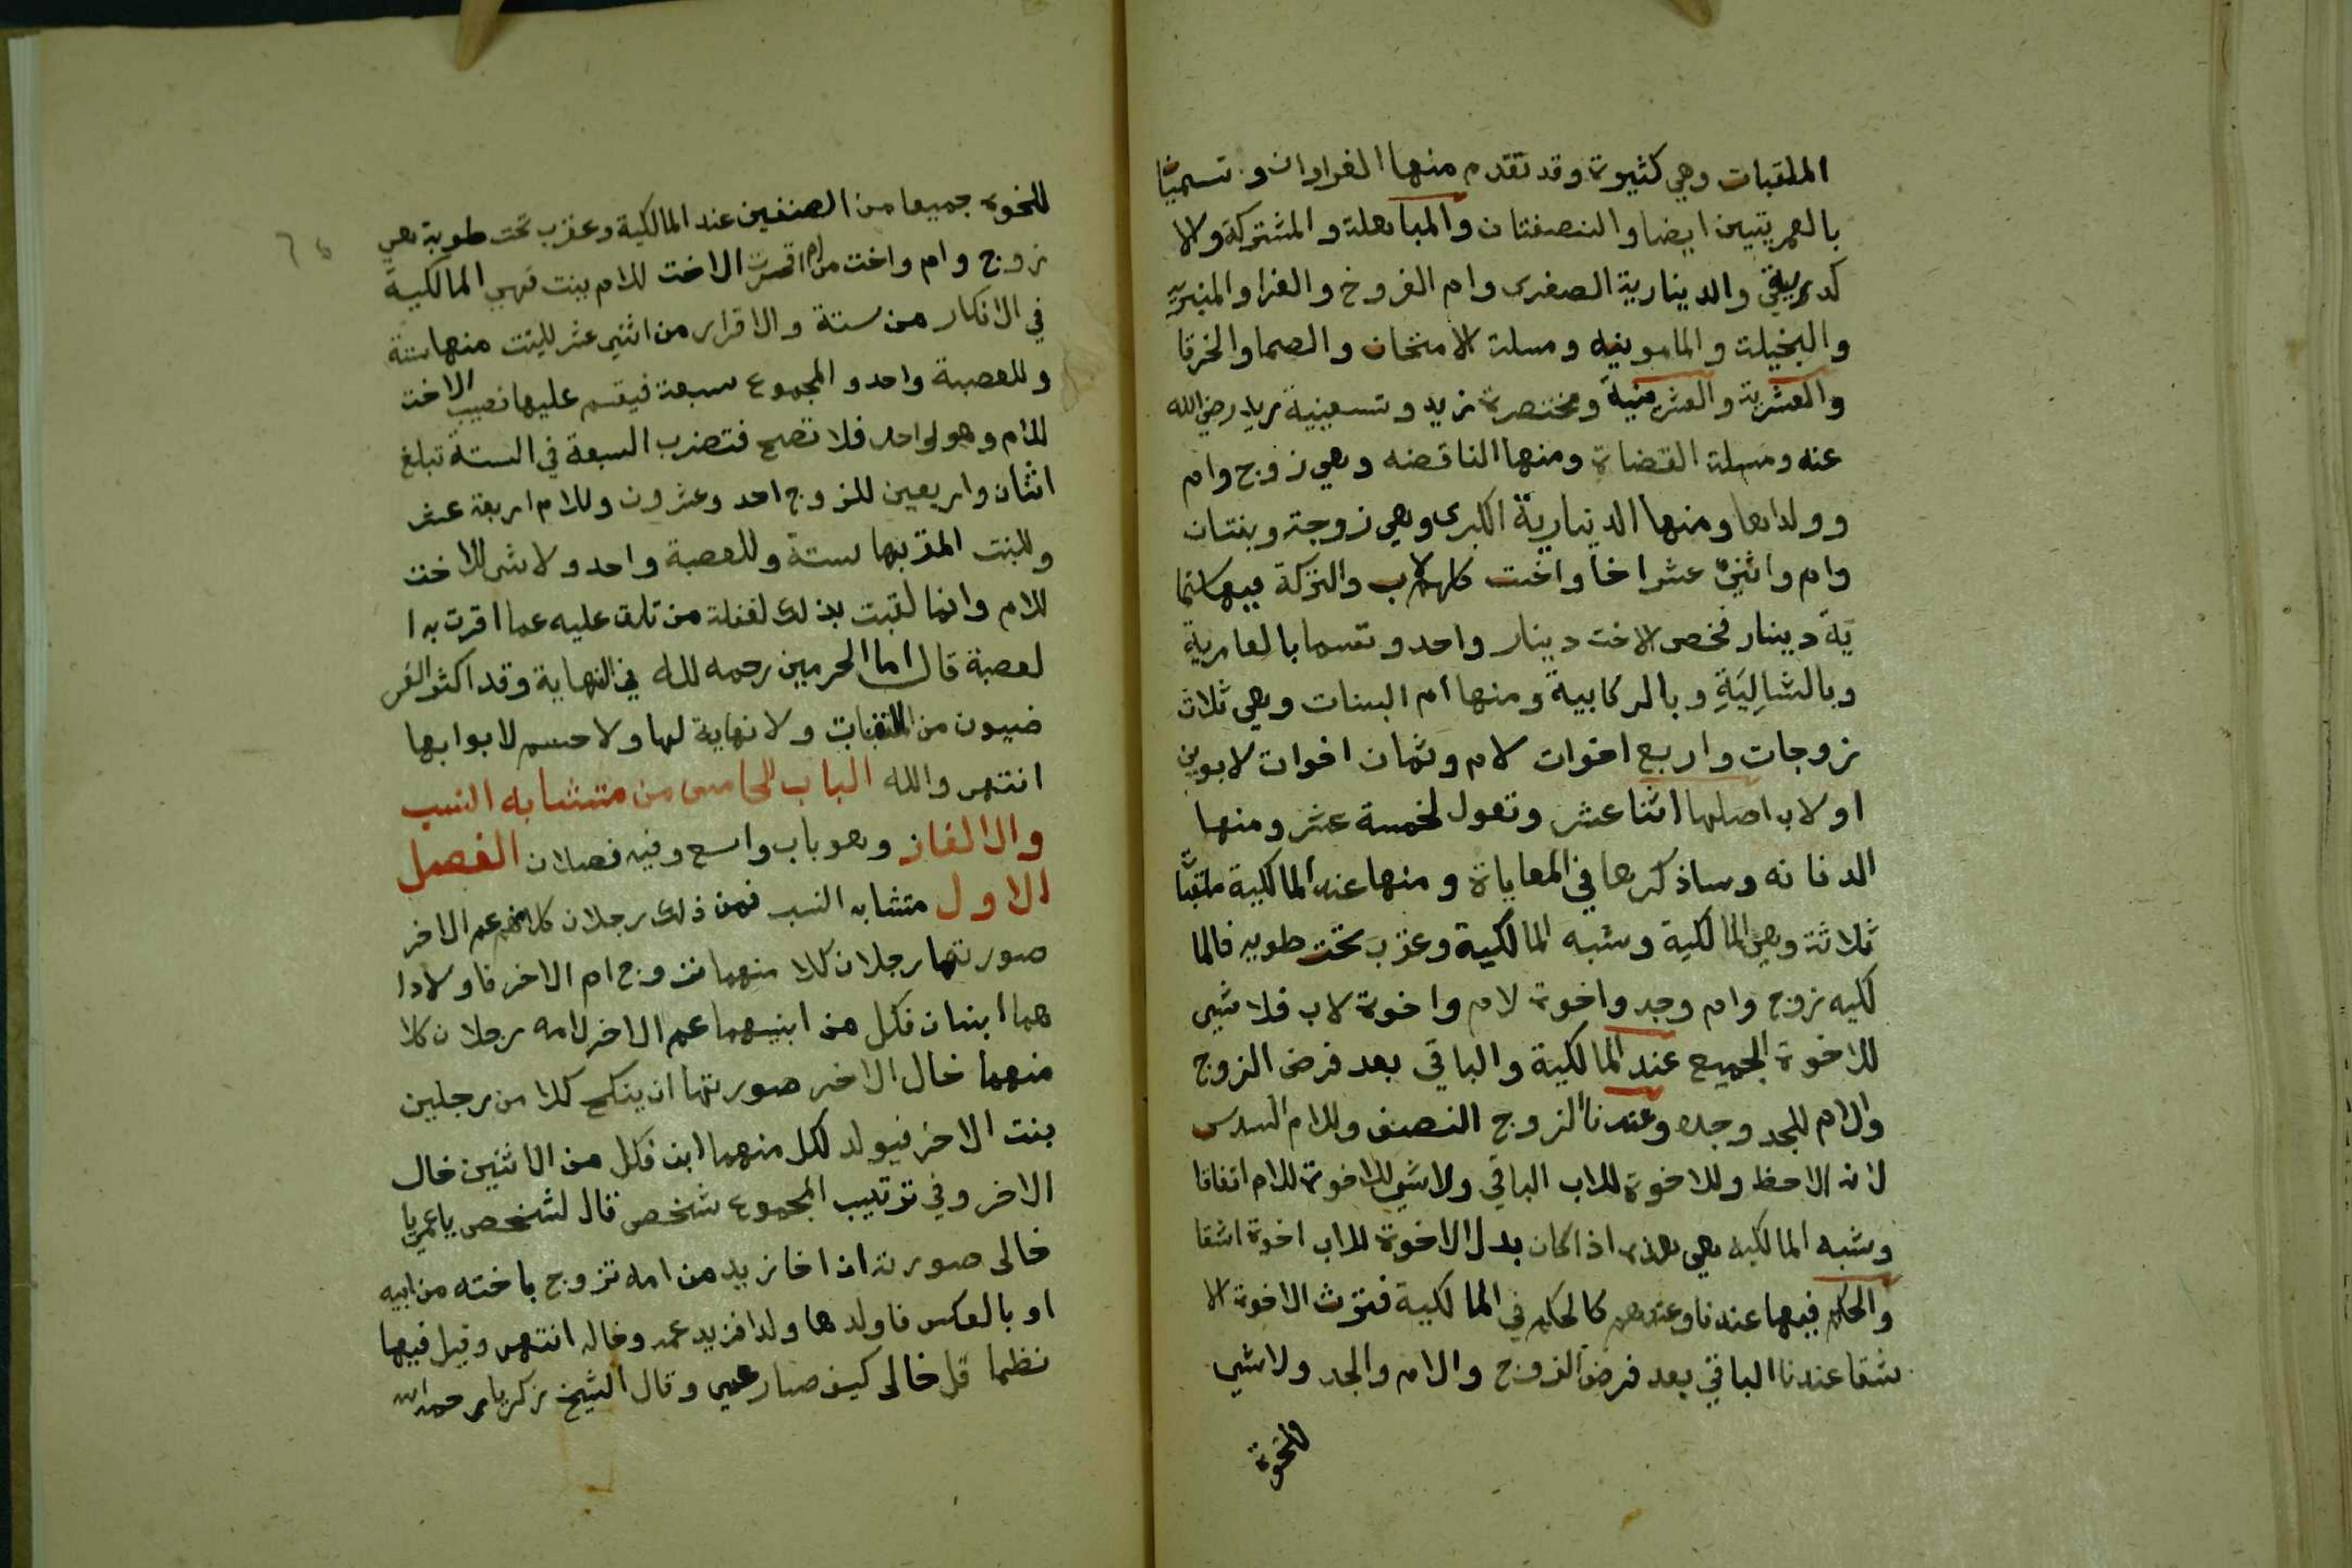 الملقبات وهي كثيرة وقد تقدم منها الغراوان وتسميتا
بالعمريتين ايضا والنصفتان والمباهلة والمشتركة والا
كدرية والدينارية الصغرى وام الفروخ والغرا والمنبريه
والبخيلة والمامونيه ومسلة الامتحان والصما والخرقا
والعشرية والعشرينية ومختصرة زيد وتسعينية زيد رضي الله
عنه ومسلة القضاة ومنها الناقضه وهي زوج وام
وولداها ومنها الدينارية الكبرى وهي زوجة وبنتان
وام واثني عشر اخا واخت كلهم لاب والتركة فيها ستما
ية دينار فخص الاخت دينار واحد وتسما بالعامرية
وبالشاليَةِ وبالركابية ومنها ام البنات وهي ثلاث
زوجات واربع اخوات لام وثمان اخوات لابوين
او لاب اصلها اثنا عشر وتعول لخمسة عشر ومنها
الدفانه وساذكرها في المعاياة ومنها عند المالكية ملقبا
ثلاثة وهي المالكية وشبه المالكية وعقرب تحت طوبه فالما
لكيه زوج وام وجد واخوة لام واخوة لاب فلا شي
للاخوة الجميع عند المالكية والباقي بعد فرض الزوج
والام للجد وحده وعندنا الزوج النصف وللام السدس
لانه الاحظ وللاخوة للاب الباقي ولاشي للاخوة للام اتفاقا
وشبه المالكيه هي هذه اذا كان بدل الاخوة للاب اخوة اشقا
والحكم فيها عندنا وعندهم كالحكم في المالكية فترث الاخوة الا
شقا عندنا الباقي بعد فرض الزوج والام والجد ولاشي
للخوة
للخوة جميعا من الصنفين عند المالكية وعقرب تحت طوبة هي
زوج وام واخت من ام اقرت الاخت للام ببنت فهي المالكية
في الانكار من ستة والاقرار من اثني عشر للبنت منها ستة
وللعصبة واحد والمجموع سبعة فيقسم عليها نصيب الاخت
للام وهو لواحد فلا تصح فتضرب السبعة في الستة تبلغ
اثنان واربعين للزوج احد وعشرون وللام اربعة عشر
وللبنت المقر بها ستة وللعصبة واحد ولا شي للاخت
للام وانما لقبت بذلك لغفلة من تلقى عليه عما اقرت به ا
لعصبة قال اما الحرمين رحمه لله في النهاية وقد اكثر الفر
ضيون من الملقبات ولا نهاية لها ولا حسم لابوابها
انتهى والله الباب الخامس من متشابه النسب
والالغاز وهو باب واسع وفيه فصلان الفصل
الاول متشابه النسب فمن ذلك رجلان كلا منهم عم الاخر
صورتها رجلان كلا منهما تزوج ام الاخر فاولادا
هما ابنان فكل من ابنيهما عم الاخر لامه رجلان كلا
منهما خال الاخر صورتها ان ينكح كلا من رجلين
بنت الاخر فيولد لكل منهما ابن فكل من الاثنين خال
الاخر وفي ترتيب المجموع شخص قال لشخص ياعمي يا
خالى صورته ان اخا زيد من امه تزوج باخته من ابيه
او بالعكس فاولدها ولدا فزيد عمه وخاله انتهى وقيل فيها
نظما قل خالى كيف صار عمي وقال الشيخ زكريا رحمه الله